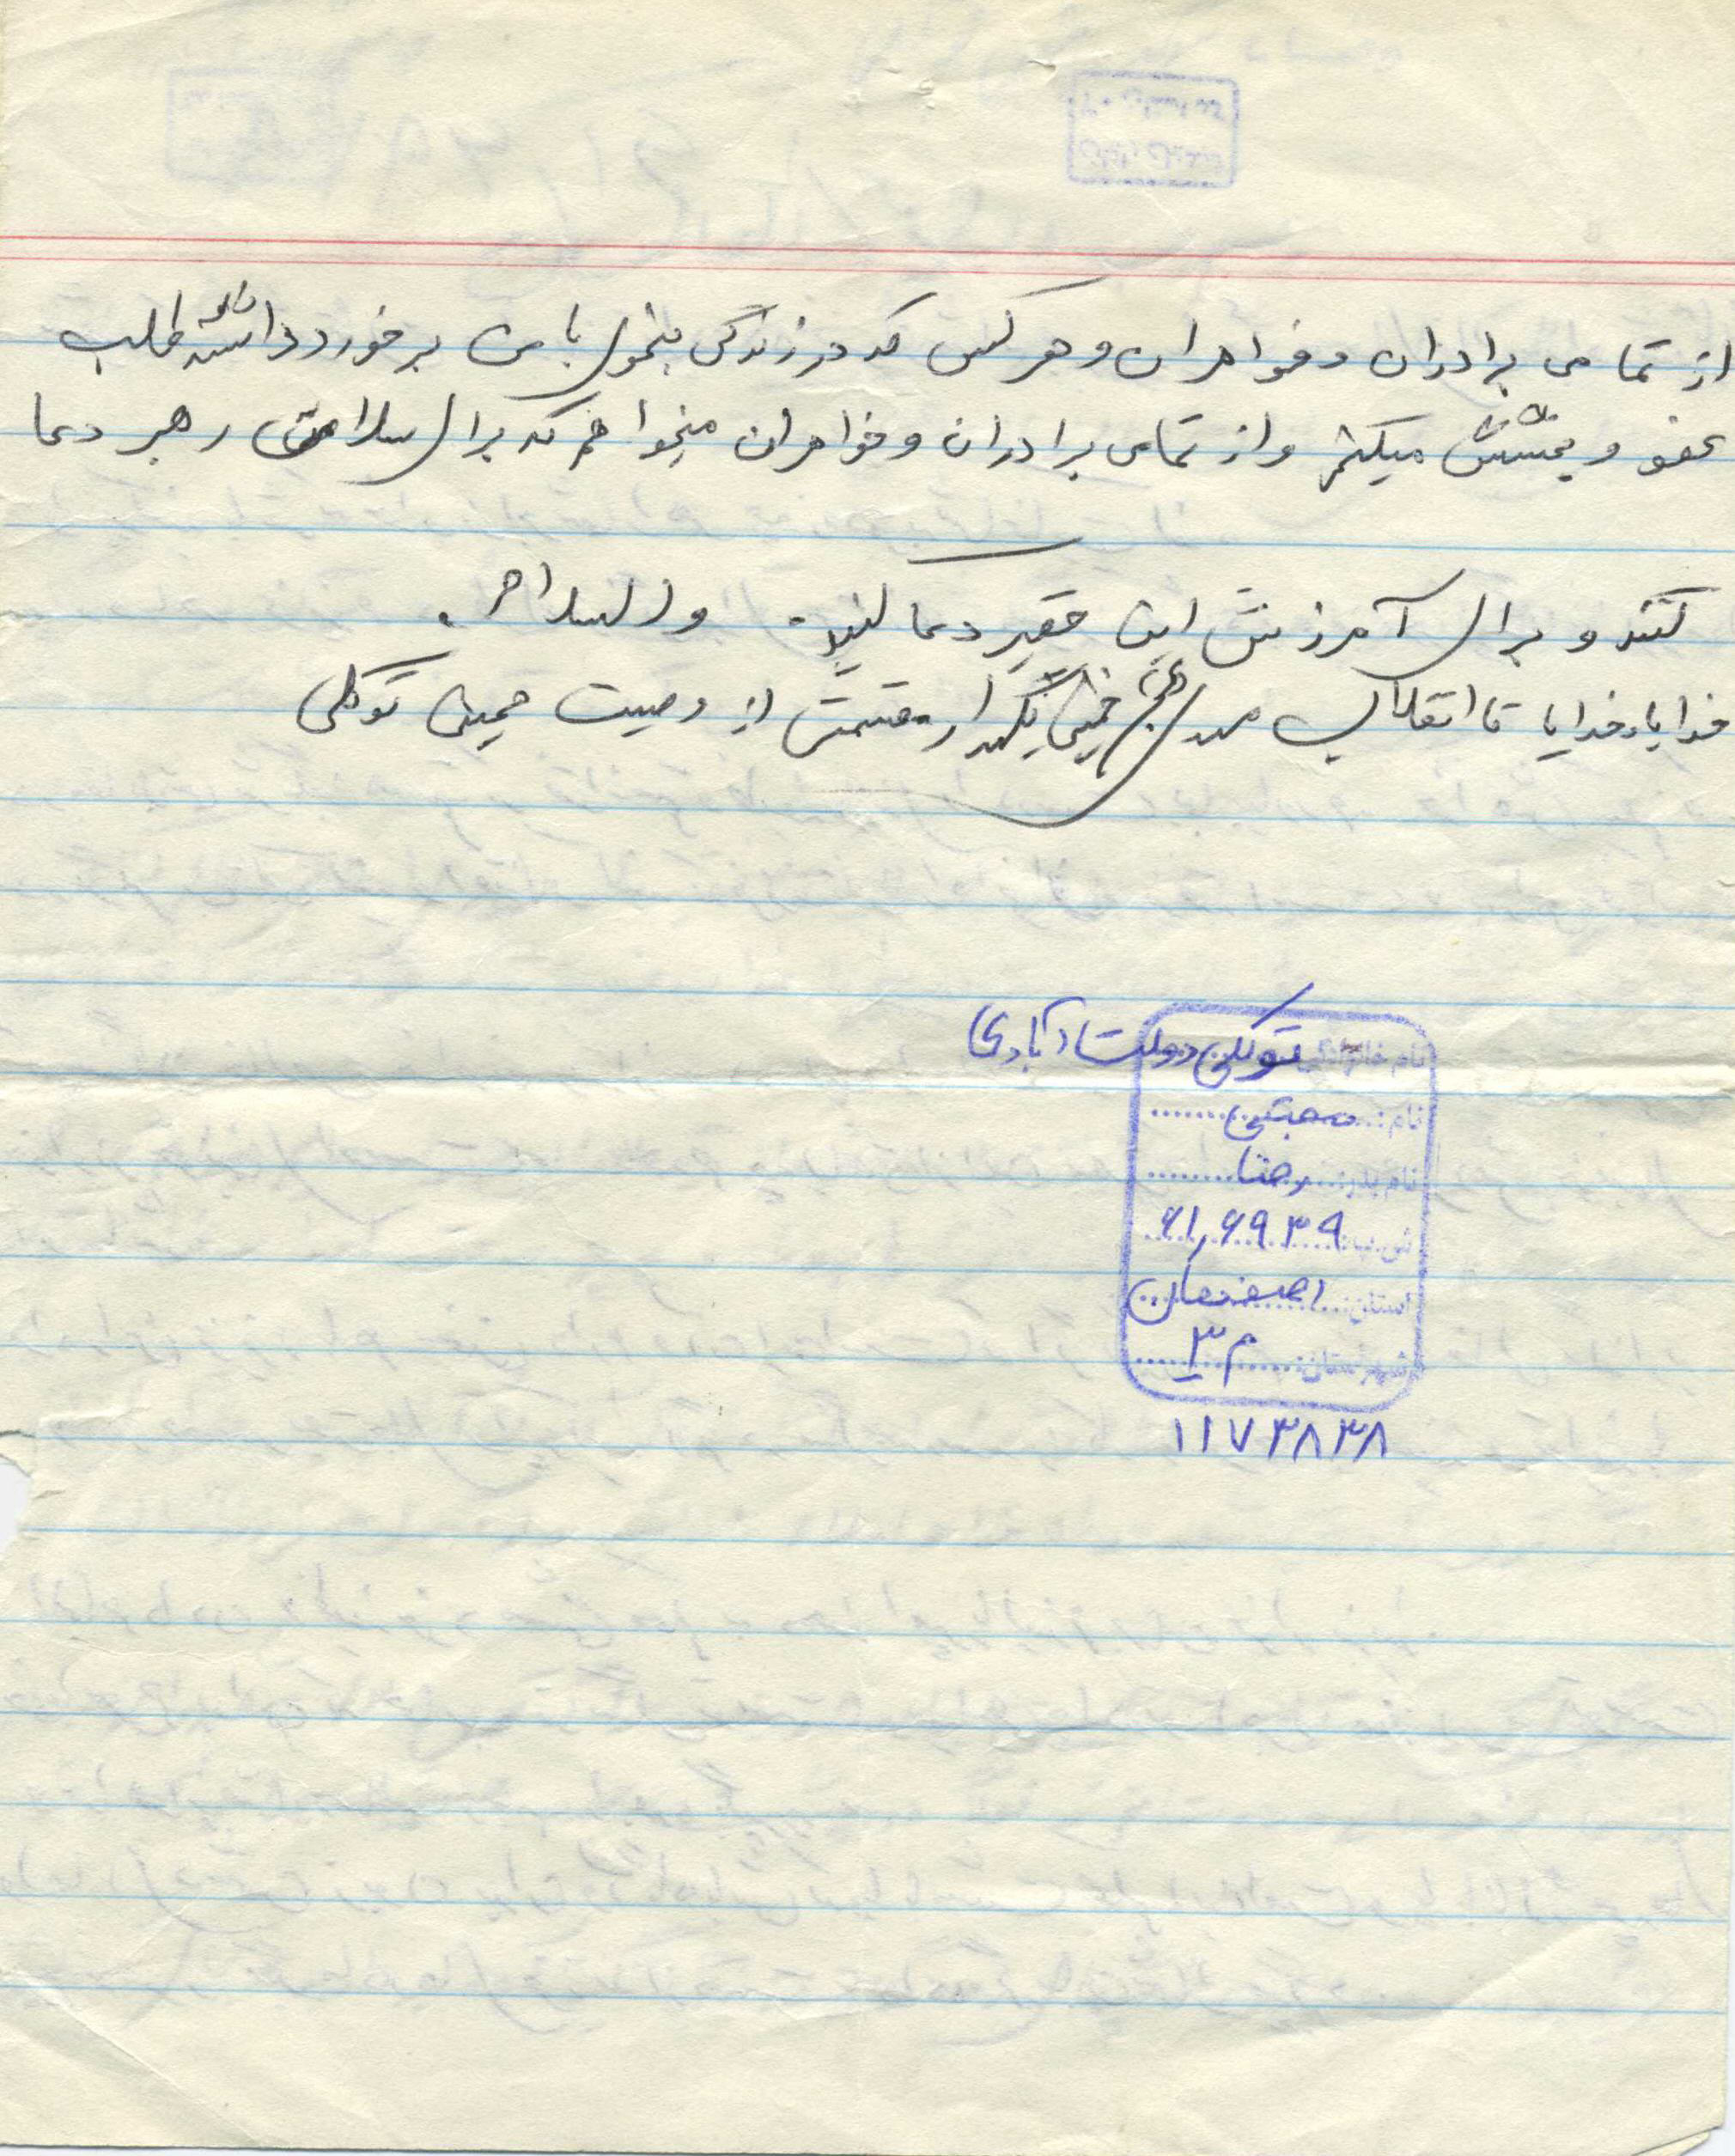 از تمامی برادران و خواهران و هر کس که در زندگی بنحوی با من برخورد داشته‌اند طلب
عفو و بخشش میکنم و از تمامی برادران و خواهران میخواهم که برای سلامتی رهبر دعا
کنند و برای آمرزش این حقیر دعا کنید. والسلام.
خدایا، خدایا تا انقلاب مهدی (عج) خمینی را نگهدار. قسمتی از وصیت توکلی
نام خانوادگی توکلی دولت‌آبادی
نام: مجتبی
نام پدر: رضا
ش.پ: ۶۱,۶۹۳۹
استان: اصفهان
شهرستان: م ۳
۱۱۷۳۸۳۸